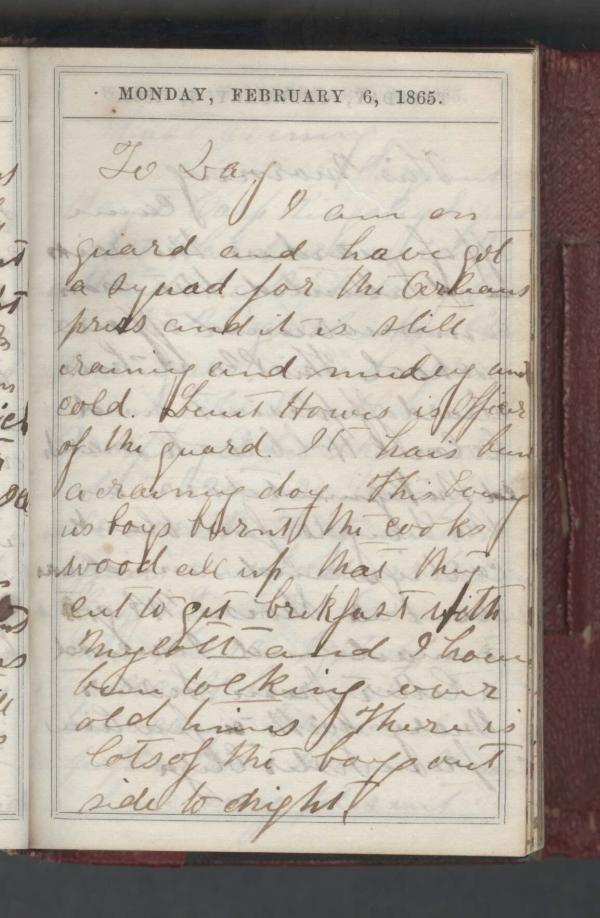 MONDAY, FEBRUARY 6, 1865.
To Day
I am on
guard and have got
a squad for the Orleans
press and it is still
raining and mudey and
cold. Leiut Howes is Officer
of the guard. It hais bun
a rainy day This Eving
us boys burnt the cooks
wood all up that they
cut to git brekfast with
and I have
bun tolking over
old times There is
lots of the boys out
side to night